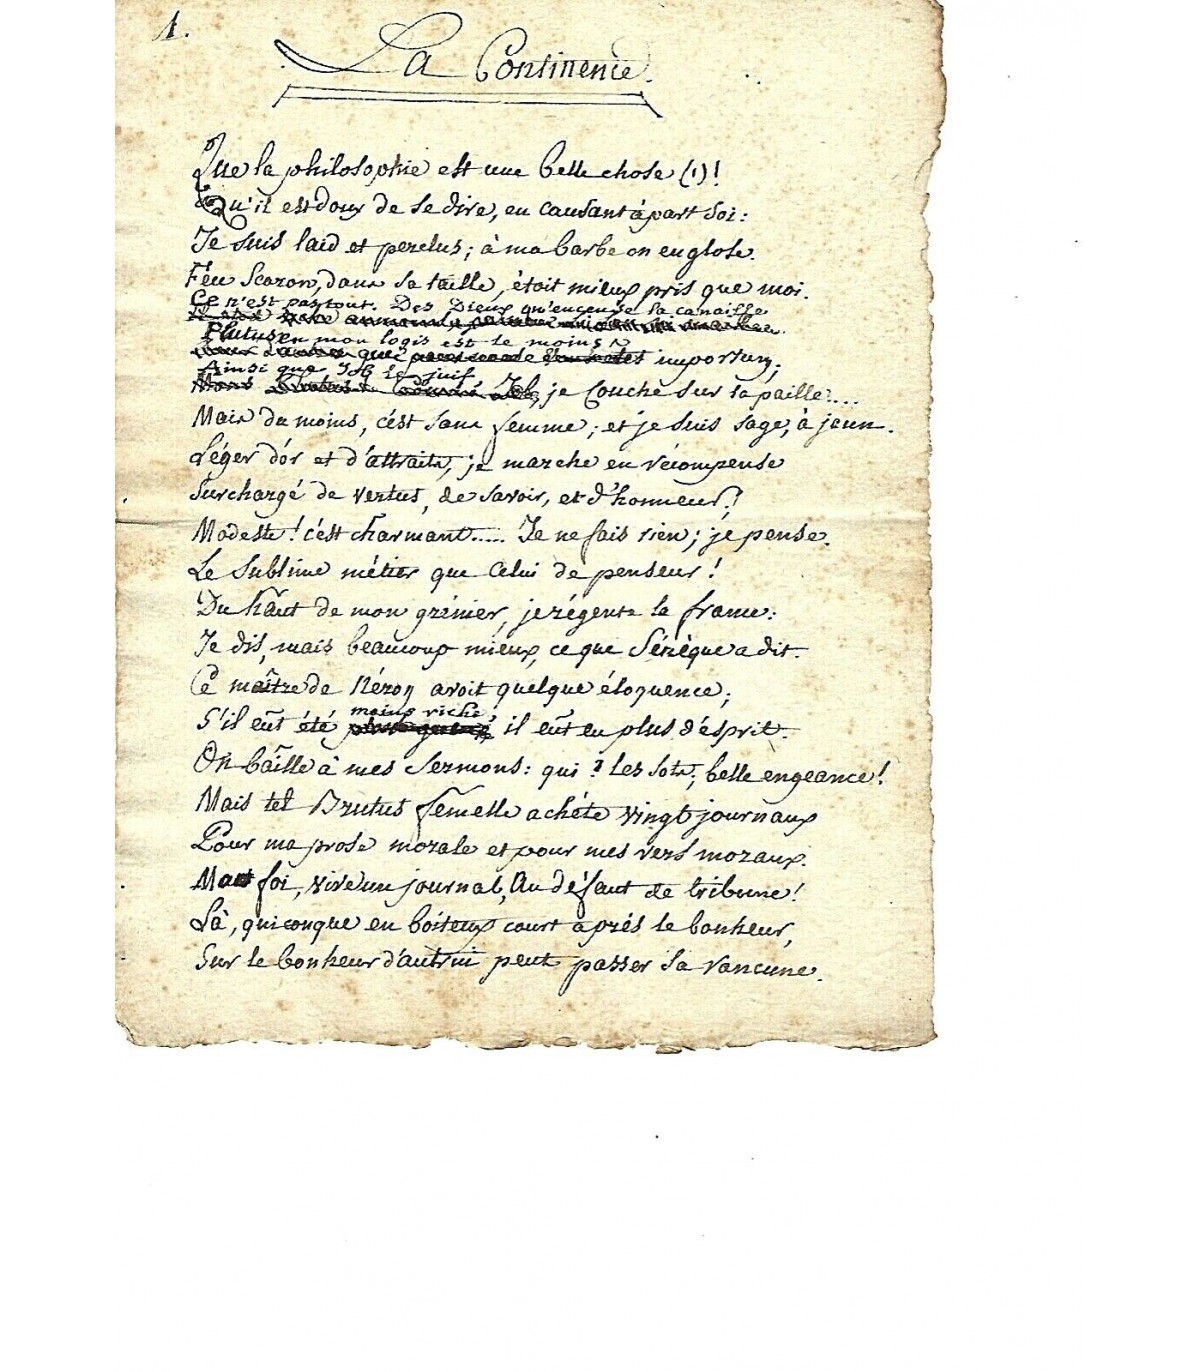 1.
La Continence.
Que la philosophie est une belle chose (1)!
Qu'il est doux de se dire, en causant à part soi:
Je suis laid et perclus; à ma barbe on en glose.
Féu Scaron, dans sa taille, étoit mieux pris que moi.
Ce n'est pas tout. Des Dieux qu'encense la canaille
Plutus en mon logis est le moins
importun;
Ainsi que Job le juif
je couche sur la paille....
Mais du moins, c'est sans femme; et je suis sage, à jeun.
Léger d'or et d'attraits, je marche en récompense
Surchargé de vertus, de savoir, et d'honneur;
Modeste! c'est charmant..... Je ne fais rien; je pense.
Le sublime métier que celui de penseur!
Du haut de mon grénier, je régente la france:
Je dis, mais beaucoup mieux, ce que Sénèque a dit.
Ce maître de Néron avoit quelque éloquence;
moins riche
S'il eût été il eût eu plus d'ésprit.
On bâille à mes sermons: qui? Les sots; belle engeance!
Mais tel Brutus femelle achéte vingt journaux
Pour ma prose morale et pour mes vers moraux.
Ma foi, vive un journal, Au défaut de tribune!
Là, quiconque en boiteux court aprés le bonheur,
Sur le bonheur d'autrui peut passer sa rancune.